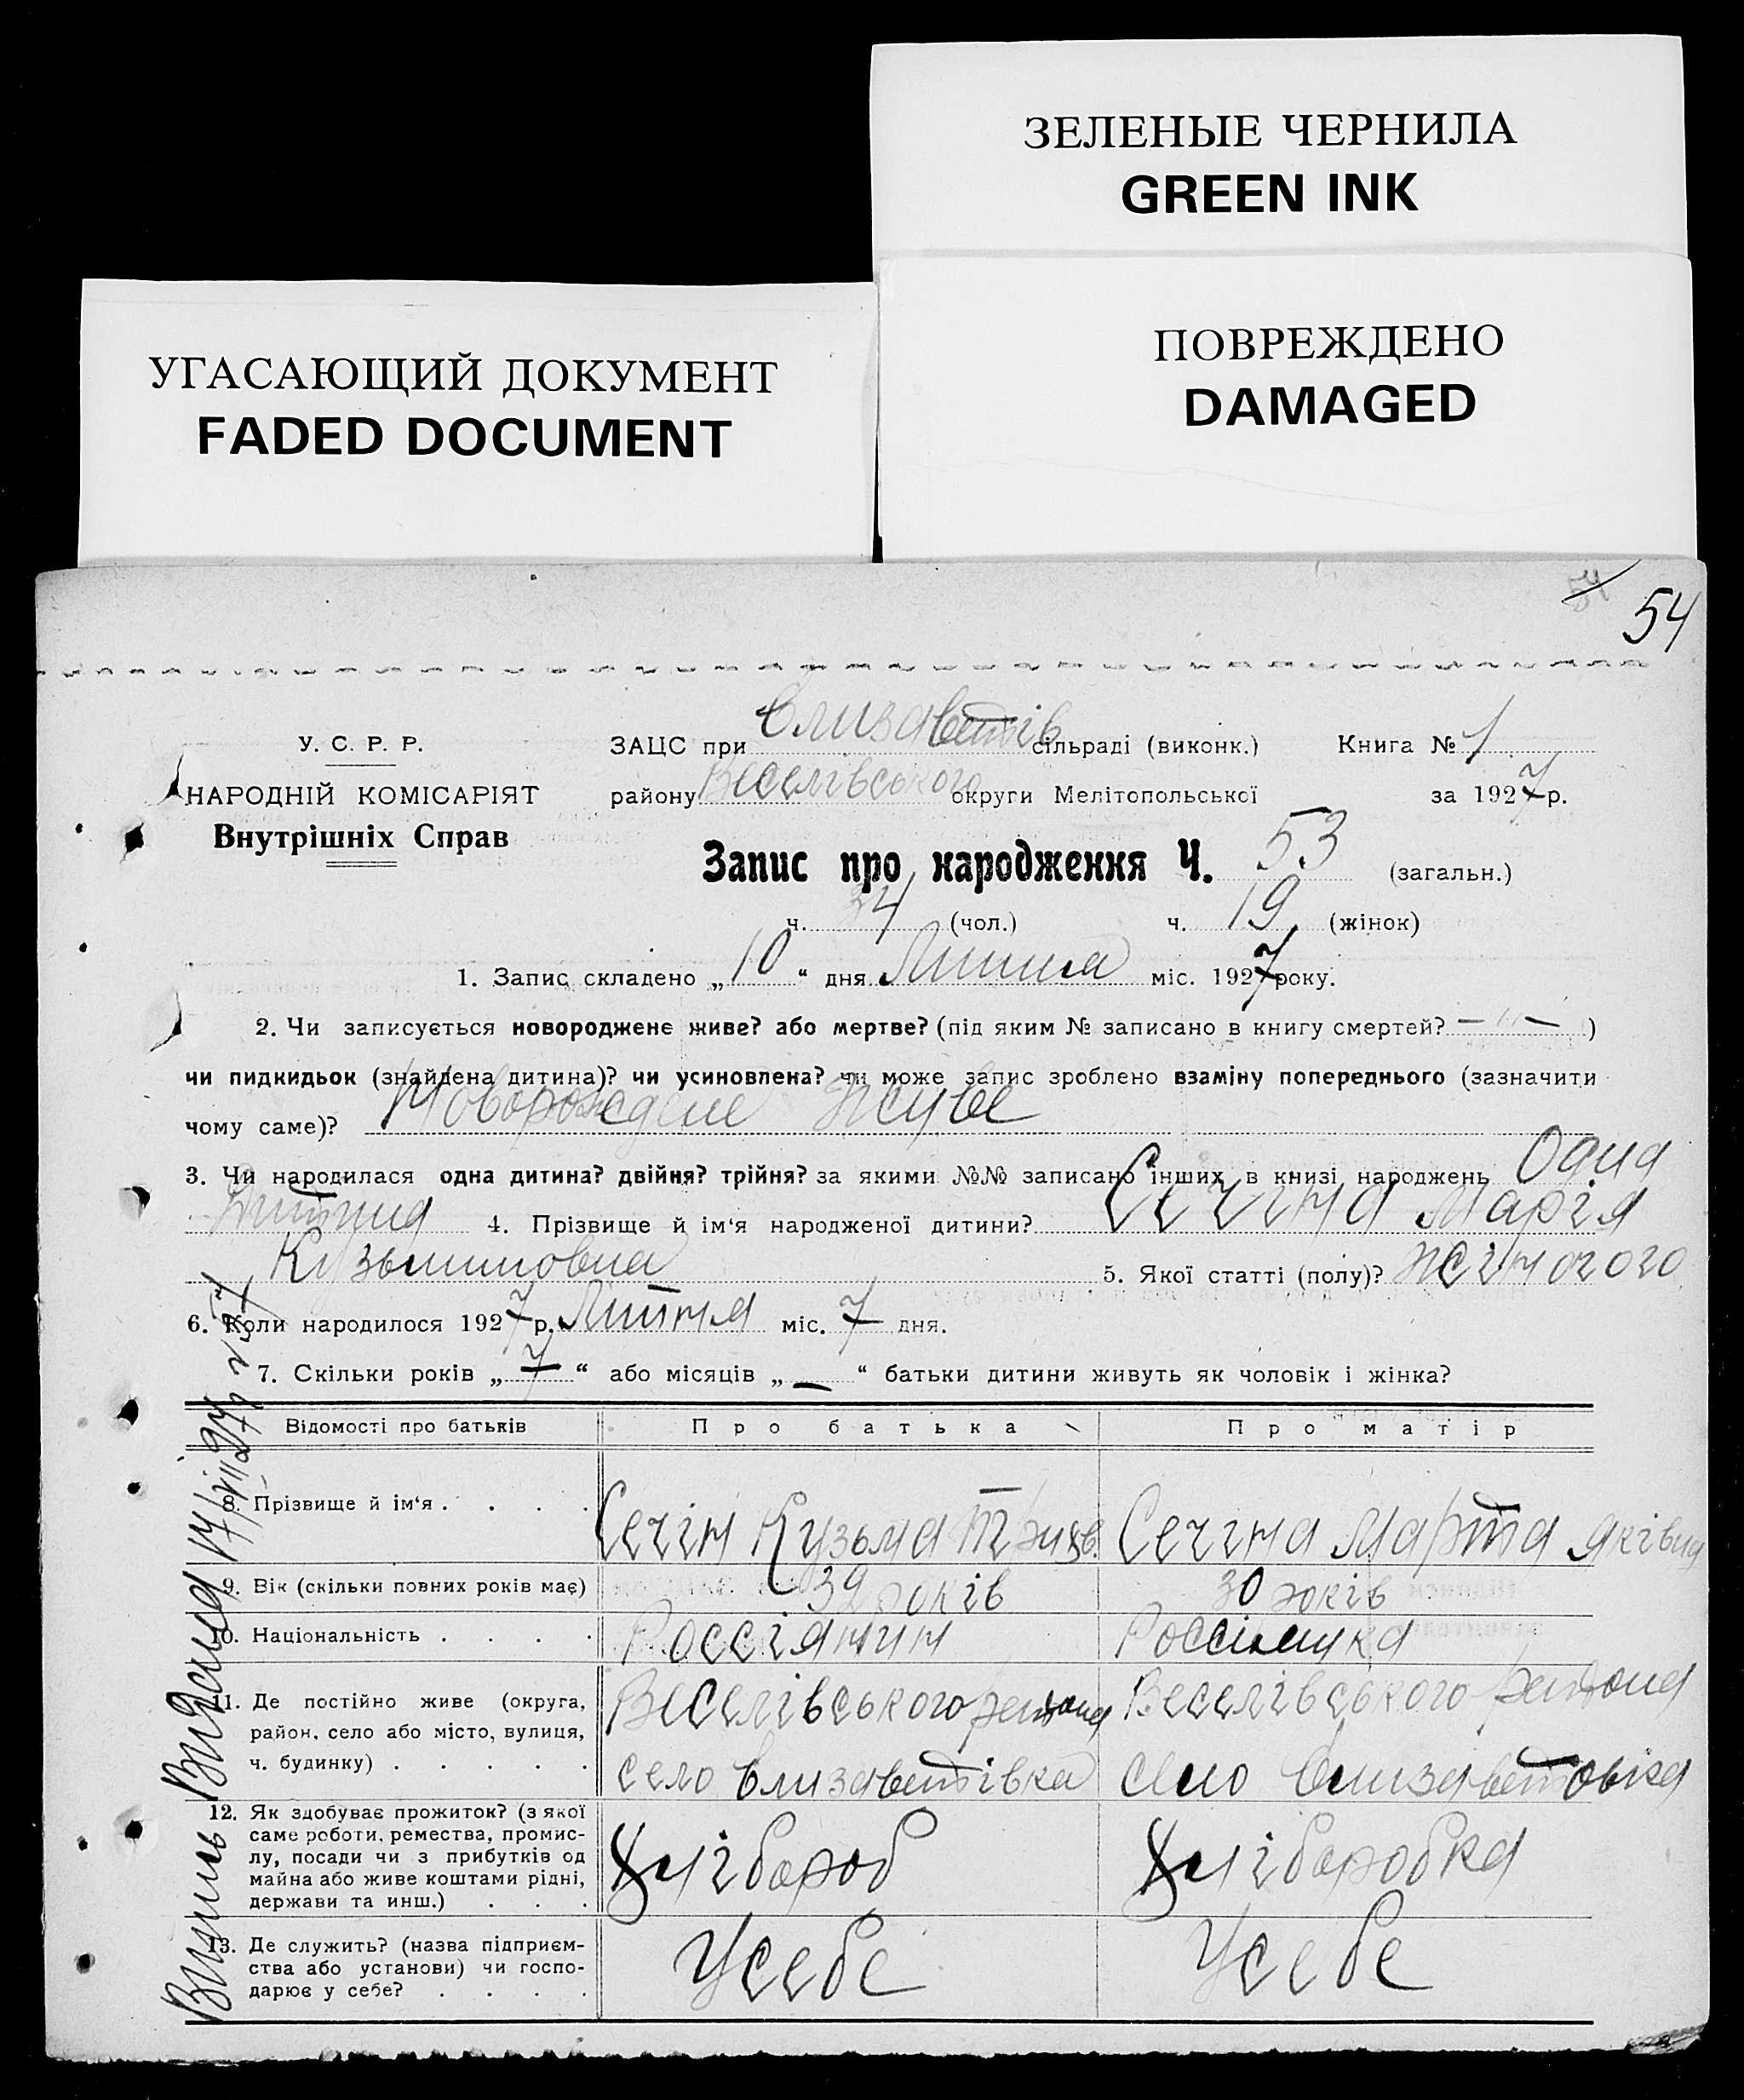 ЗЕЛЕНЫЕ ЧЕРНИЛА
GREEN INK
УГАСАЮЩИЙ ДОКУМЕНТ
FADED DOCUMENT
ПОВРЕЖДЕНО
DAMAGED
54
У. С. Р. Р.
НАРОДНІЙ КОМІСАРІЯТ
Внутрішніх Справ
ЗАЦС при Єлизаветів сільраді (виконк.) Книга № 1
району Веселівського округи Мелітопольської за 1927 р.
Запис про народження Ч. 53 (загальн.)
ч. 34 (чол.) ч. 19 (жінок)
1. Запис складено „10“ дня Липня міс. 1927 року.
2. Чи записується новороджене живе? або мертве? (під яким № записано в книгу смертей? — „ — )
чи пидкидьок (знайдена дитина)? чи усиновлена? чи може запис зроблено взаміну попереднього (зазначити
чому саме)? Новорождене живе
3. Чи народилася одна дитина? двійня? трійня? за якими №№ записано інших в книзі народжень Одна
дитина 4. Прізвище й ім‘я народженої дитини? Сечіна Марія
Кузьминовна 5. Якої статті (полу)? жіночого
6. Коли народилося 1927 р. Липня міс. 7 дня.
7. Скільки років „7“ або місяців „—“ батьки дитини живуть як чоловік і жінка?
Відомості про батьків Про батька Про матір
8. Прізвище й ім‘я . . . . Сечін Кузьма Сечіна Марта Яківна
9. Вік (скільки повних років має) 39 років 30 років
10. Національність . . . . Россіянин Россіянка
11. Де постійно живе (округа, Веселівського района Веселівського района
район, село або місто, вулиця,
ч. будинку) . . . . . село Єлизаветівка село Єлизаветовка
12. Як здобуває прожиток? (з якої
саме роботи, ремества, промис-
лу, посади чи з прибутків од Хлібороб Хліборобка
майна або живе коштами рідні,
держави та инш.) . . .
13. Де служить? (назва підприєм-
ства або установи) чи госпо- У себе У себе
дарює у себе? . . . .
Видана